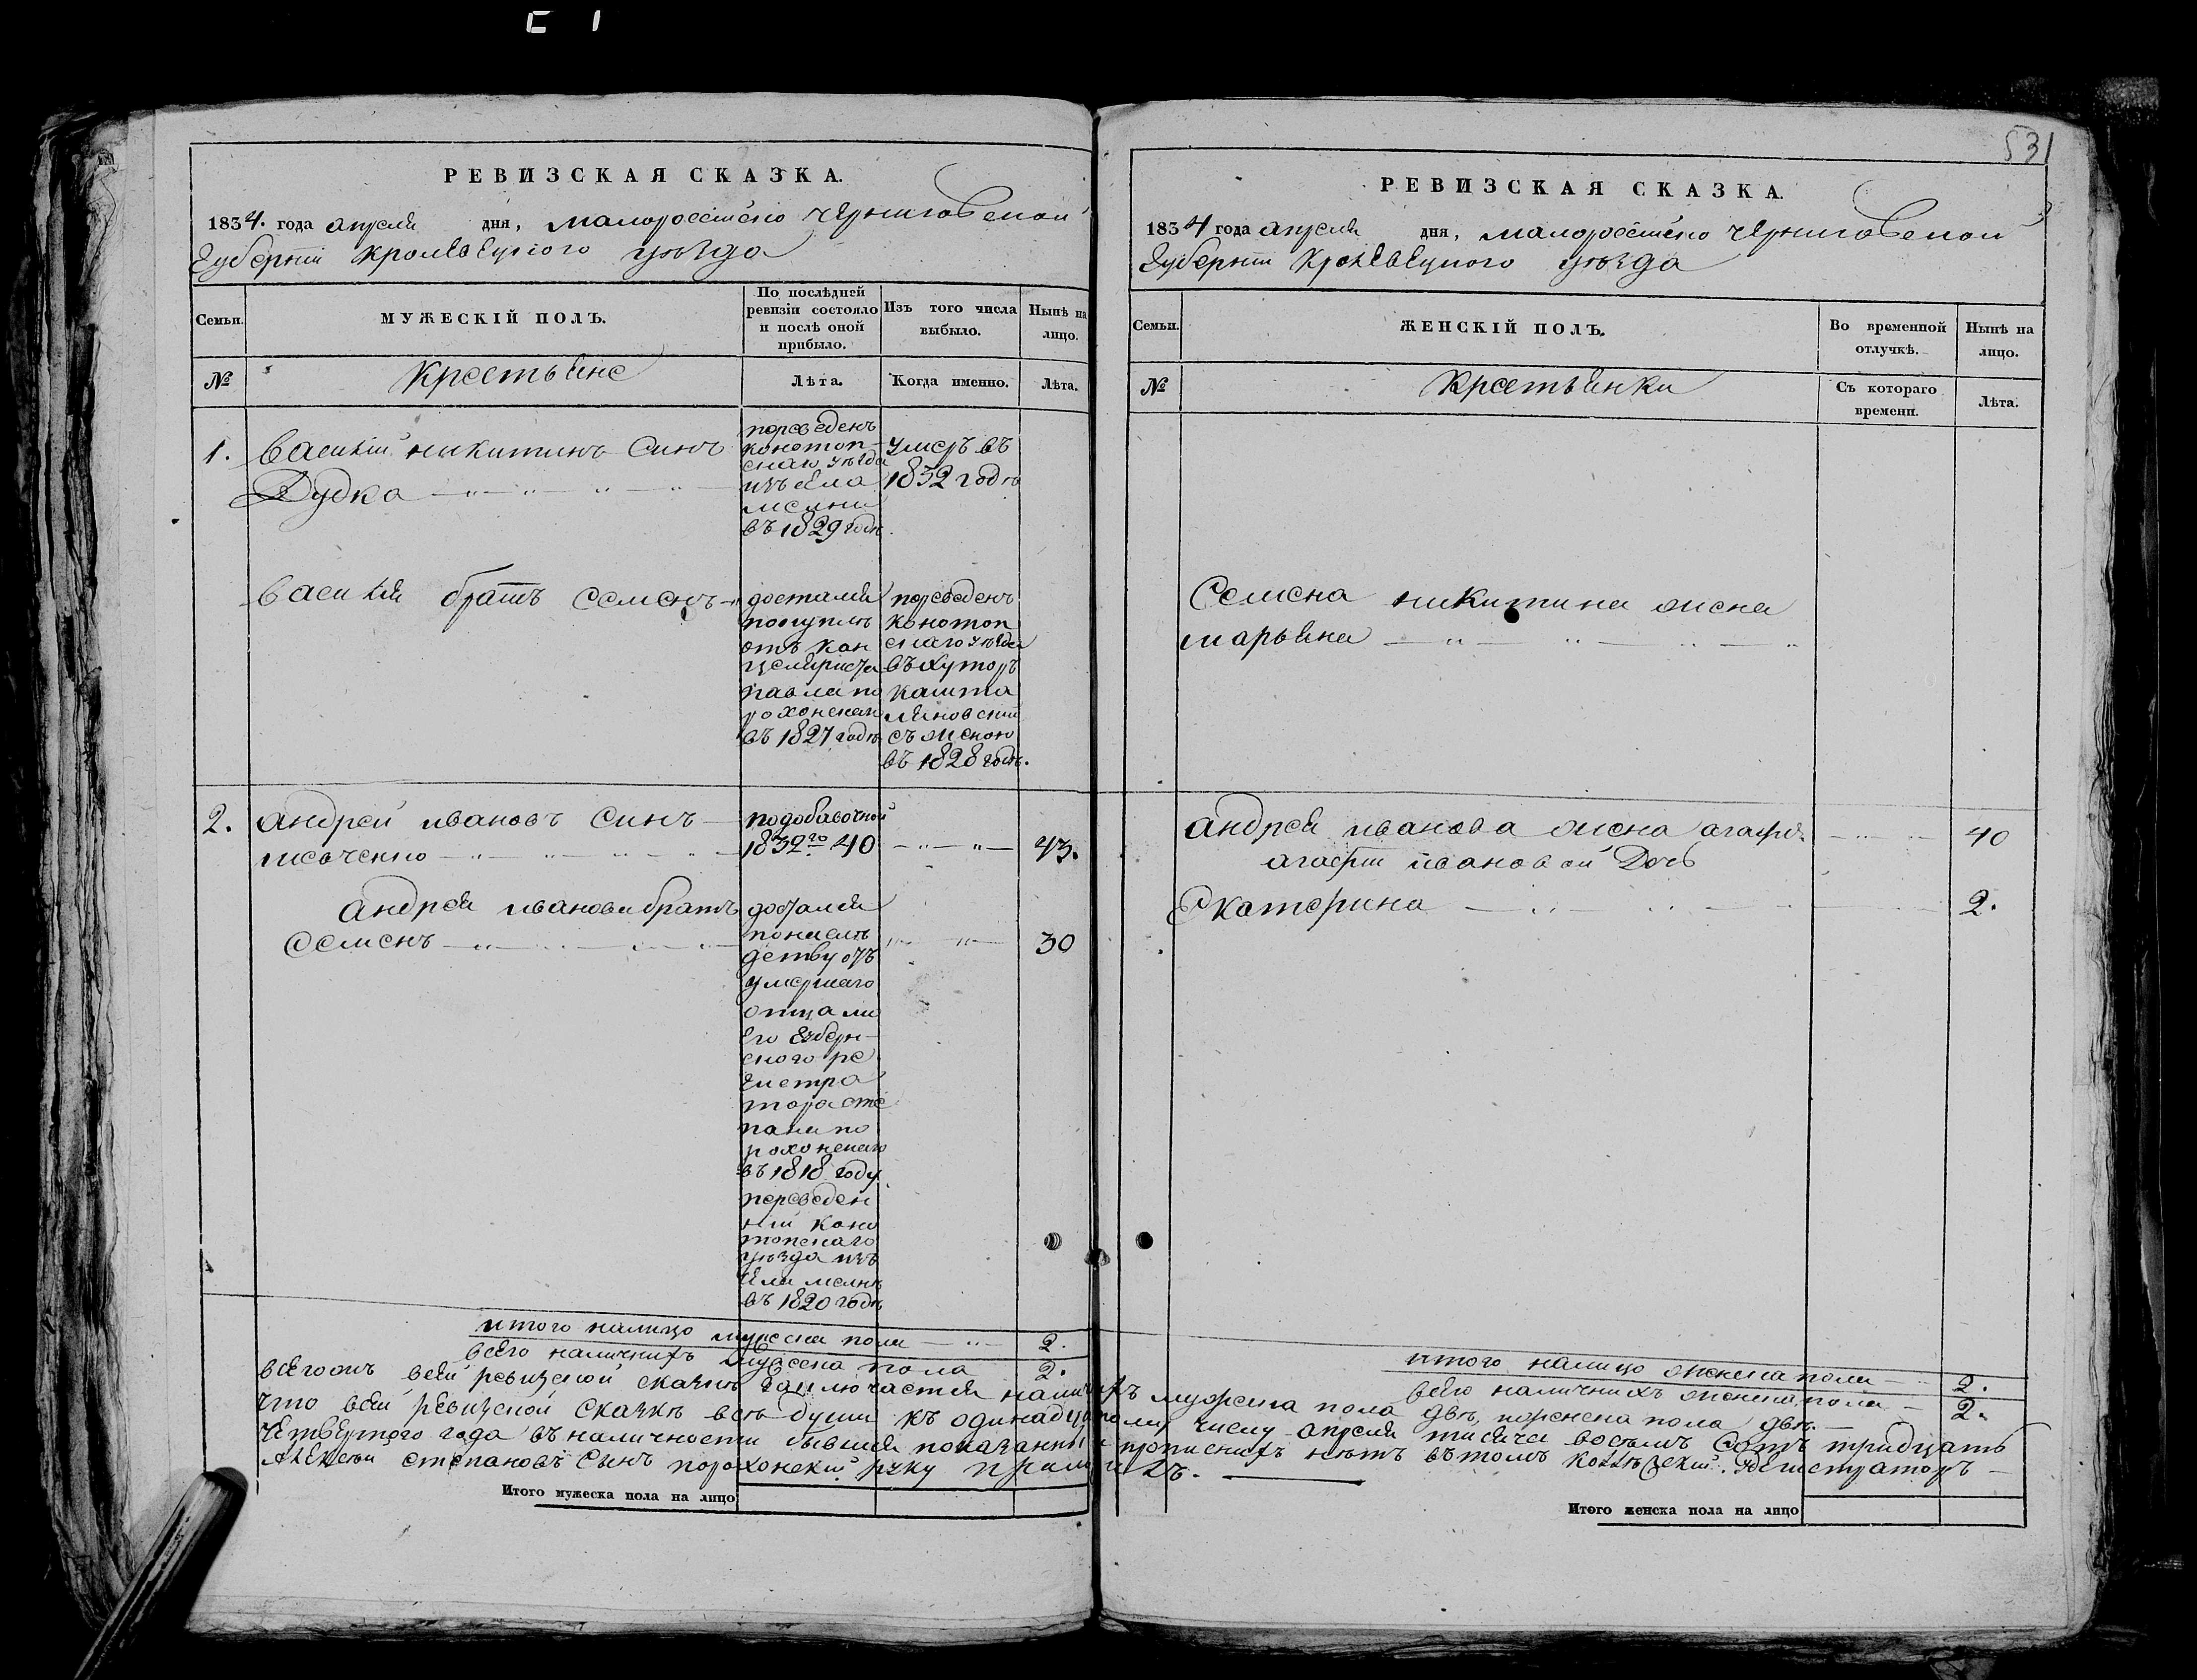 531
РЕВИЗСКАЯ СКАЗКА.
1834. года апреля дня, малороссійско Черниговской
Губерніи Кролевецкого уѣзда
Семьи.
МУЖЕСКІЙ ПОЛЪ.
По послѣдней
ревизіи состояло
и послѣ оной
прибыло.
Изъ того числа
выбыло.
Нынѣ на
лицо.
№
Крестьяне
Лѣта.
Когда именно.
Лѣта.
1. Василій никитинъ Синъ
Дудка
переведенъ
конотоп-
скаго уѣзда
изъ села
въ 1829 годѣ
умеръ въ
1832 годѣ
Василія братъ Семенъ
достался
отъ кан
целяриста
павла по
рохонскаго
въ 1827 годѣ
переведенъ
конотоп
скаго уѣзда
въ хуторъ
съ женою
въ 1828 годѣ.
2. андрей ивановъ Синъ
подобавочной
1832го 40
43.
андрея иванова братъ
Семенъ
достался
по наслѣ
детву отъ
умершаго
отца
его Губерн-
ского ре
гистра
тора сте
пана по
рохонскаго
въ 1818 году
переведен
ній коно
топскаго
уѣзда изъ
села
въ 1820 годѣ
30
итого налицо мужеска пола 2.
всего наличнихъ мужеска пола 2.
РЕВИЗСКАЯ СКАЗКА.
1834 года апреля дня, малороссійско Черниговской
Губерніи Кролевецкого уѣзда
Семьи.
ЖЕНСКІЙ ПОЛЪ.
Во временной
отлучкѣ.
Нынѣ на
лицо.
№
Крестьянки
Съ котораго
времени.
Лѣта.
Семена никитина жена
марьяна
андрея иванова жена агафія 40
агафіи ивановой Дочь
Екатерина 2.
итого налицо женска пола 2.
всего наличнихъ женска пола 2.
всего въ всей ревизской сказкѣ заключается наличнихъ мужеска пола двѣ, и женска пола двѣ.
что всей ревизской сказкѣ всѣ души къ одинадцатому числу апреля тисяча восемъ сотъ тридцать
четвертого года въ наличности бывшія показанны и прописнихъ нѣтъ въ томъ коллѣжскій Регистраторъ
Алексѣй степановъ Сынъ порохонскій руку приложилъ.
Итого мужеска пола на лицо
Итого женска пола на лицо